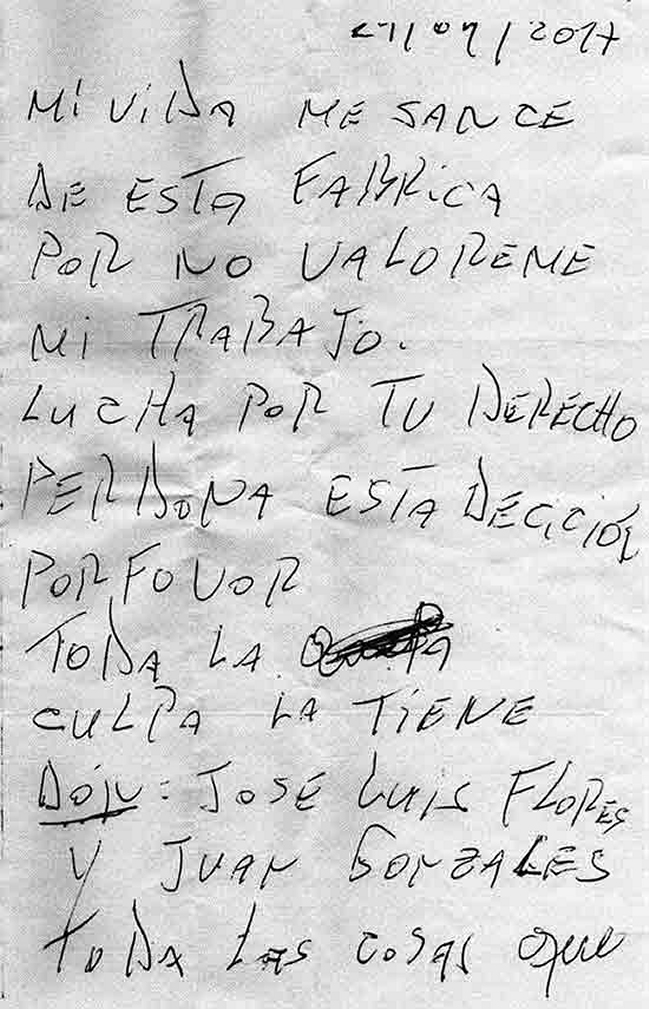 27/09/2017
MI VIDA ME SANCE
DE ESTA FABRICA
POR NO VALOREME
MI TRABAJO.
LUCHA POR TU DERECHO
PERDONA ESTA DECICIÓN
POR FOVOR
TODA LA
CULPA LA TIENE
: JOSE LUIS FLORES
Y JUAN GONZALES
TODA LAS COSAS QUE